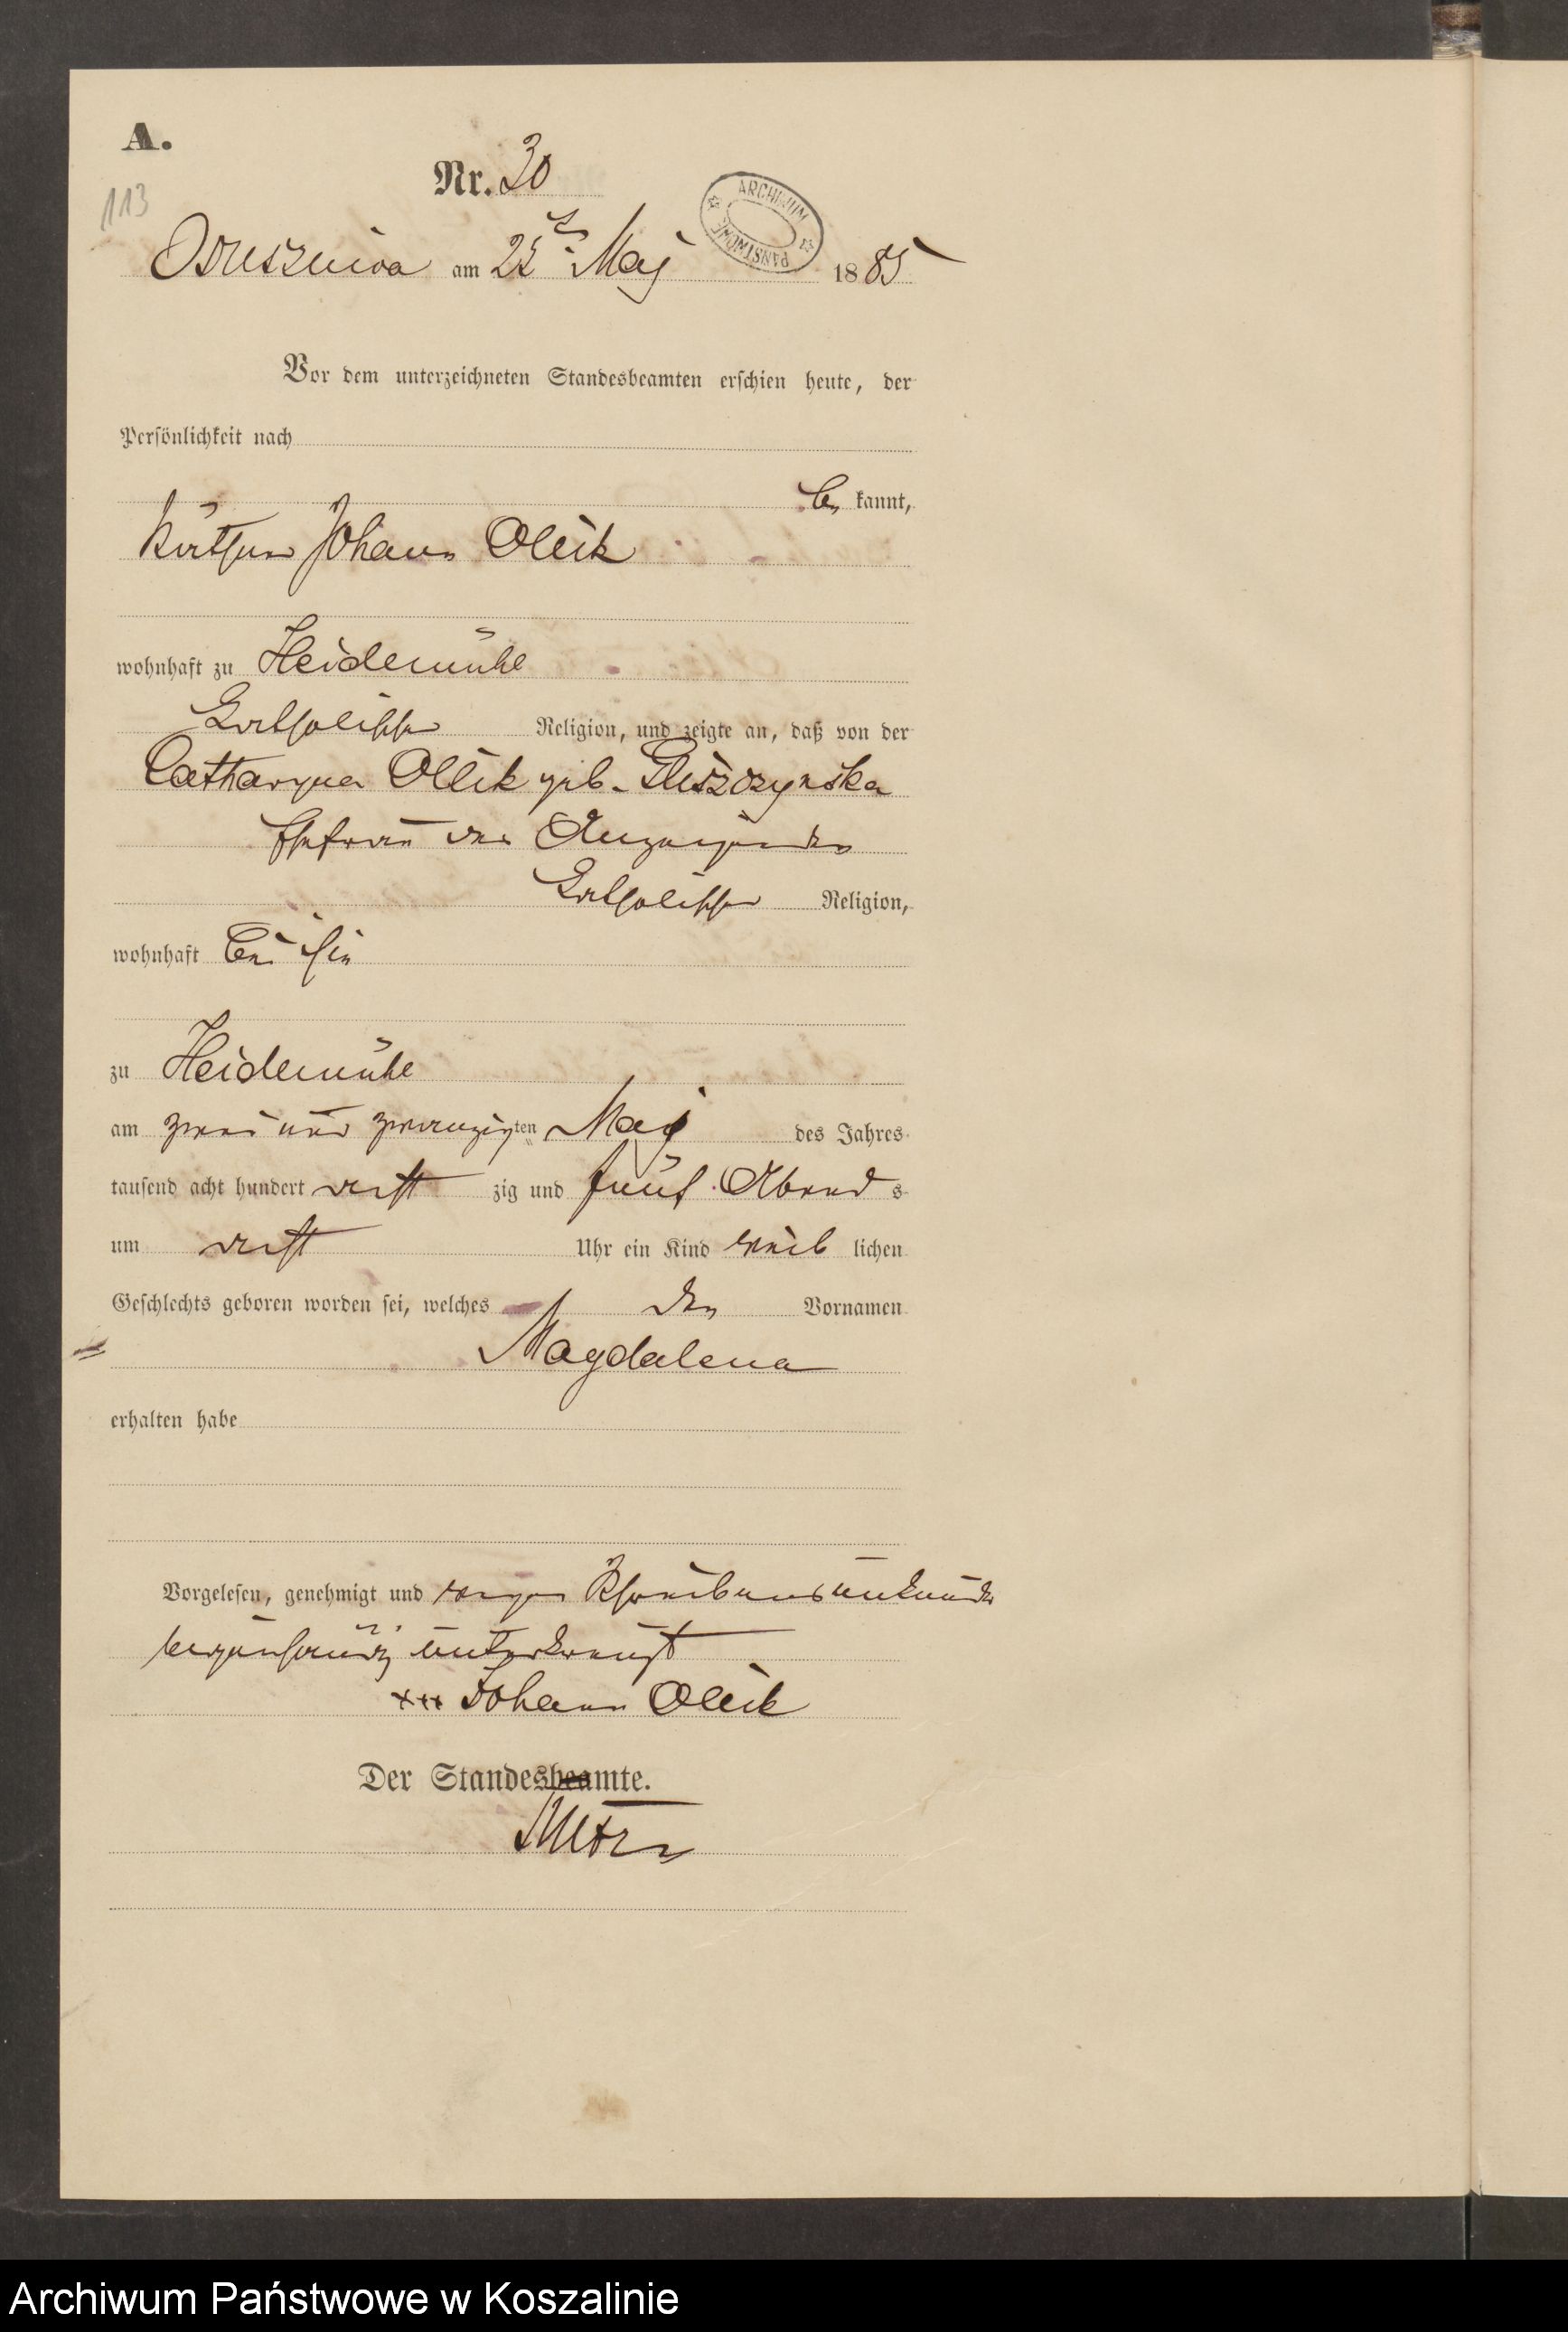 A.
113
Nr. 30
ARCHIWUM PAŃSTWOWE
Osuszniza am 25ten Maj 1885
Vor dem unterzeichneten Standesbeamten erschien heute, der
Persönlichkeit nach
be kannt,
Johann Ollik
wohnhaft zu Heidemühl
Katholischer Religion, und zeigte an, daß von der
Catharyna Ollik geb.
Ehefrau des Anzeigenden
Katholischer Religion,
wohnhaft bei ihm
zu Heidemühl
am zwei und zwanzigten Maj des Jahres
tausend acht hundert acht zig und fünf Abend s
um acht Uhr ein Kind weib lichen
Geschlechts geboren worden sei, welches den Vornamen
Magdalena
erhalten habe
Vorgelesen, genehmigt und wegen Schreibensunkunde
unterkreuzt
+++ Johann Ollik
Der Standesbeamte.
Archiwum Państwowe w Koszalinie